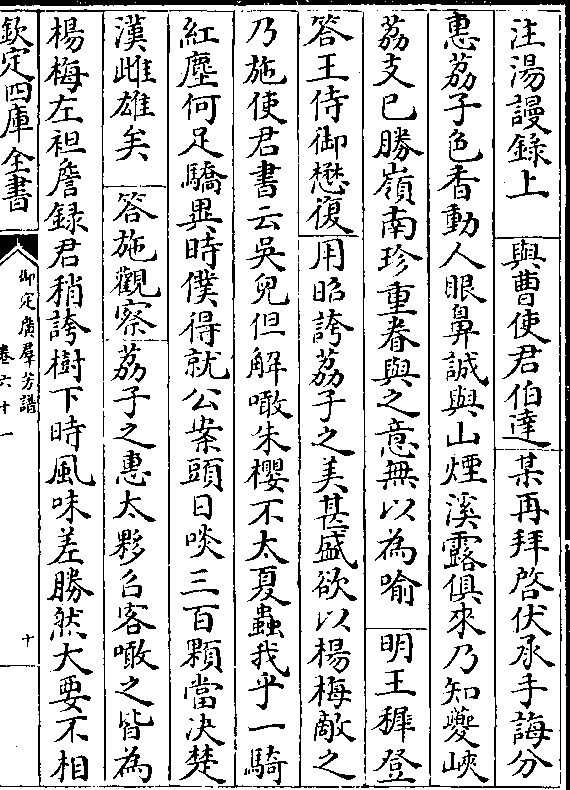 注湯謾錄上　與曹使君伯達　某再拜啓伏承手誨分
惠荔子色香動人眼鼻誠與山煙溪露俱來乃知夔峽
荔支已勝嶺南珍重眷與之意無以為喻　明王穉登
答王侍御懋復　用昭誇荔子之美甚盛欲以楊梅敵之
乃施使君書云吳兒但解噉朱櫻不太夏蟲我乎一騎
紅塵何足驕異時僕得就公案頭日啖三百顆當决楚
漢雌雄矣　答施觀察　荔子之惠太夥召客噉之皆為
楊梅左袒詹録君稍誇樹下時風味差勝然大要不相
欽定四庫全書
御定廣羣芳譜
卷六十一
十